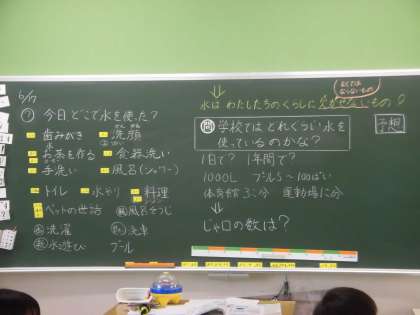 6/17
⑦ 今日どこで水を使った?
歯みがき 洗顔
せんがん
お茶を作る 食器洗い
手洗い 風呂(シャワー)
トイレ 水やり 料理
ペットの世話 風呂そうじ
洗濯 洗車
水遊び プール
なくては
ならないもの
水はわたしたちのくらしに欠かせないもの
問 学校ではどれぐらい水を
使っているのかな?
予想
1日で? 1年間で?
1000L プール5〜100ぱい
体育館3こ分 運動場1こ分
じゃ口の数は?